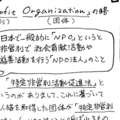 ofit Organization」の略
(団体)
日本で一般的に「NPO」というと
非営利で社会貢献活動や
慈善活動を行う「NPO法人」のこと
「特定非営利活動促進法」と
いうのがありまして、これに基づいて
人格を取得した団体が「特定非営利